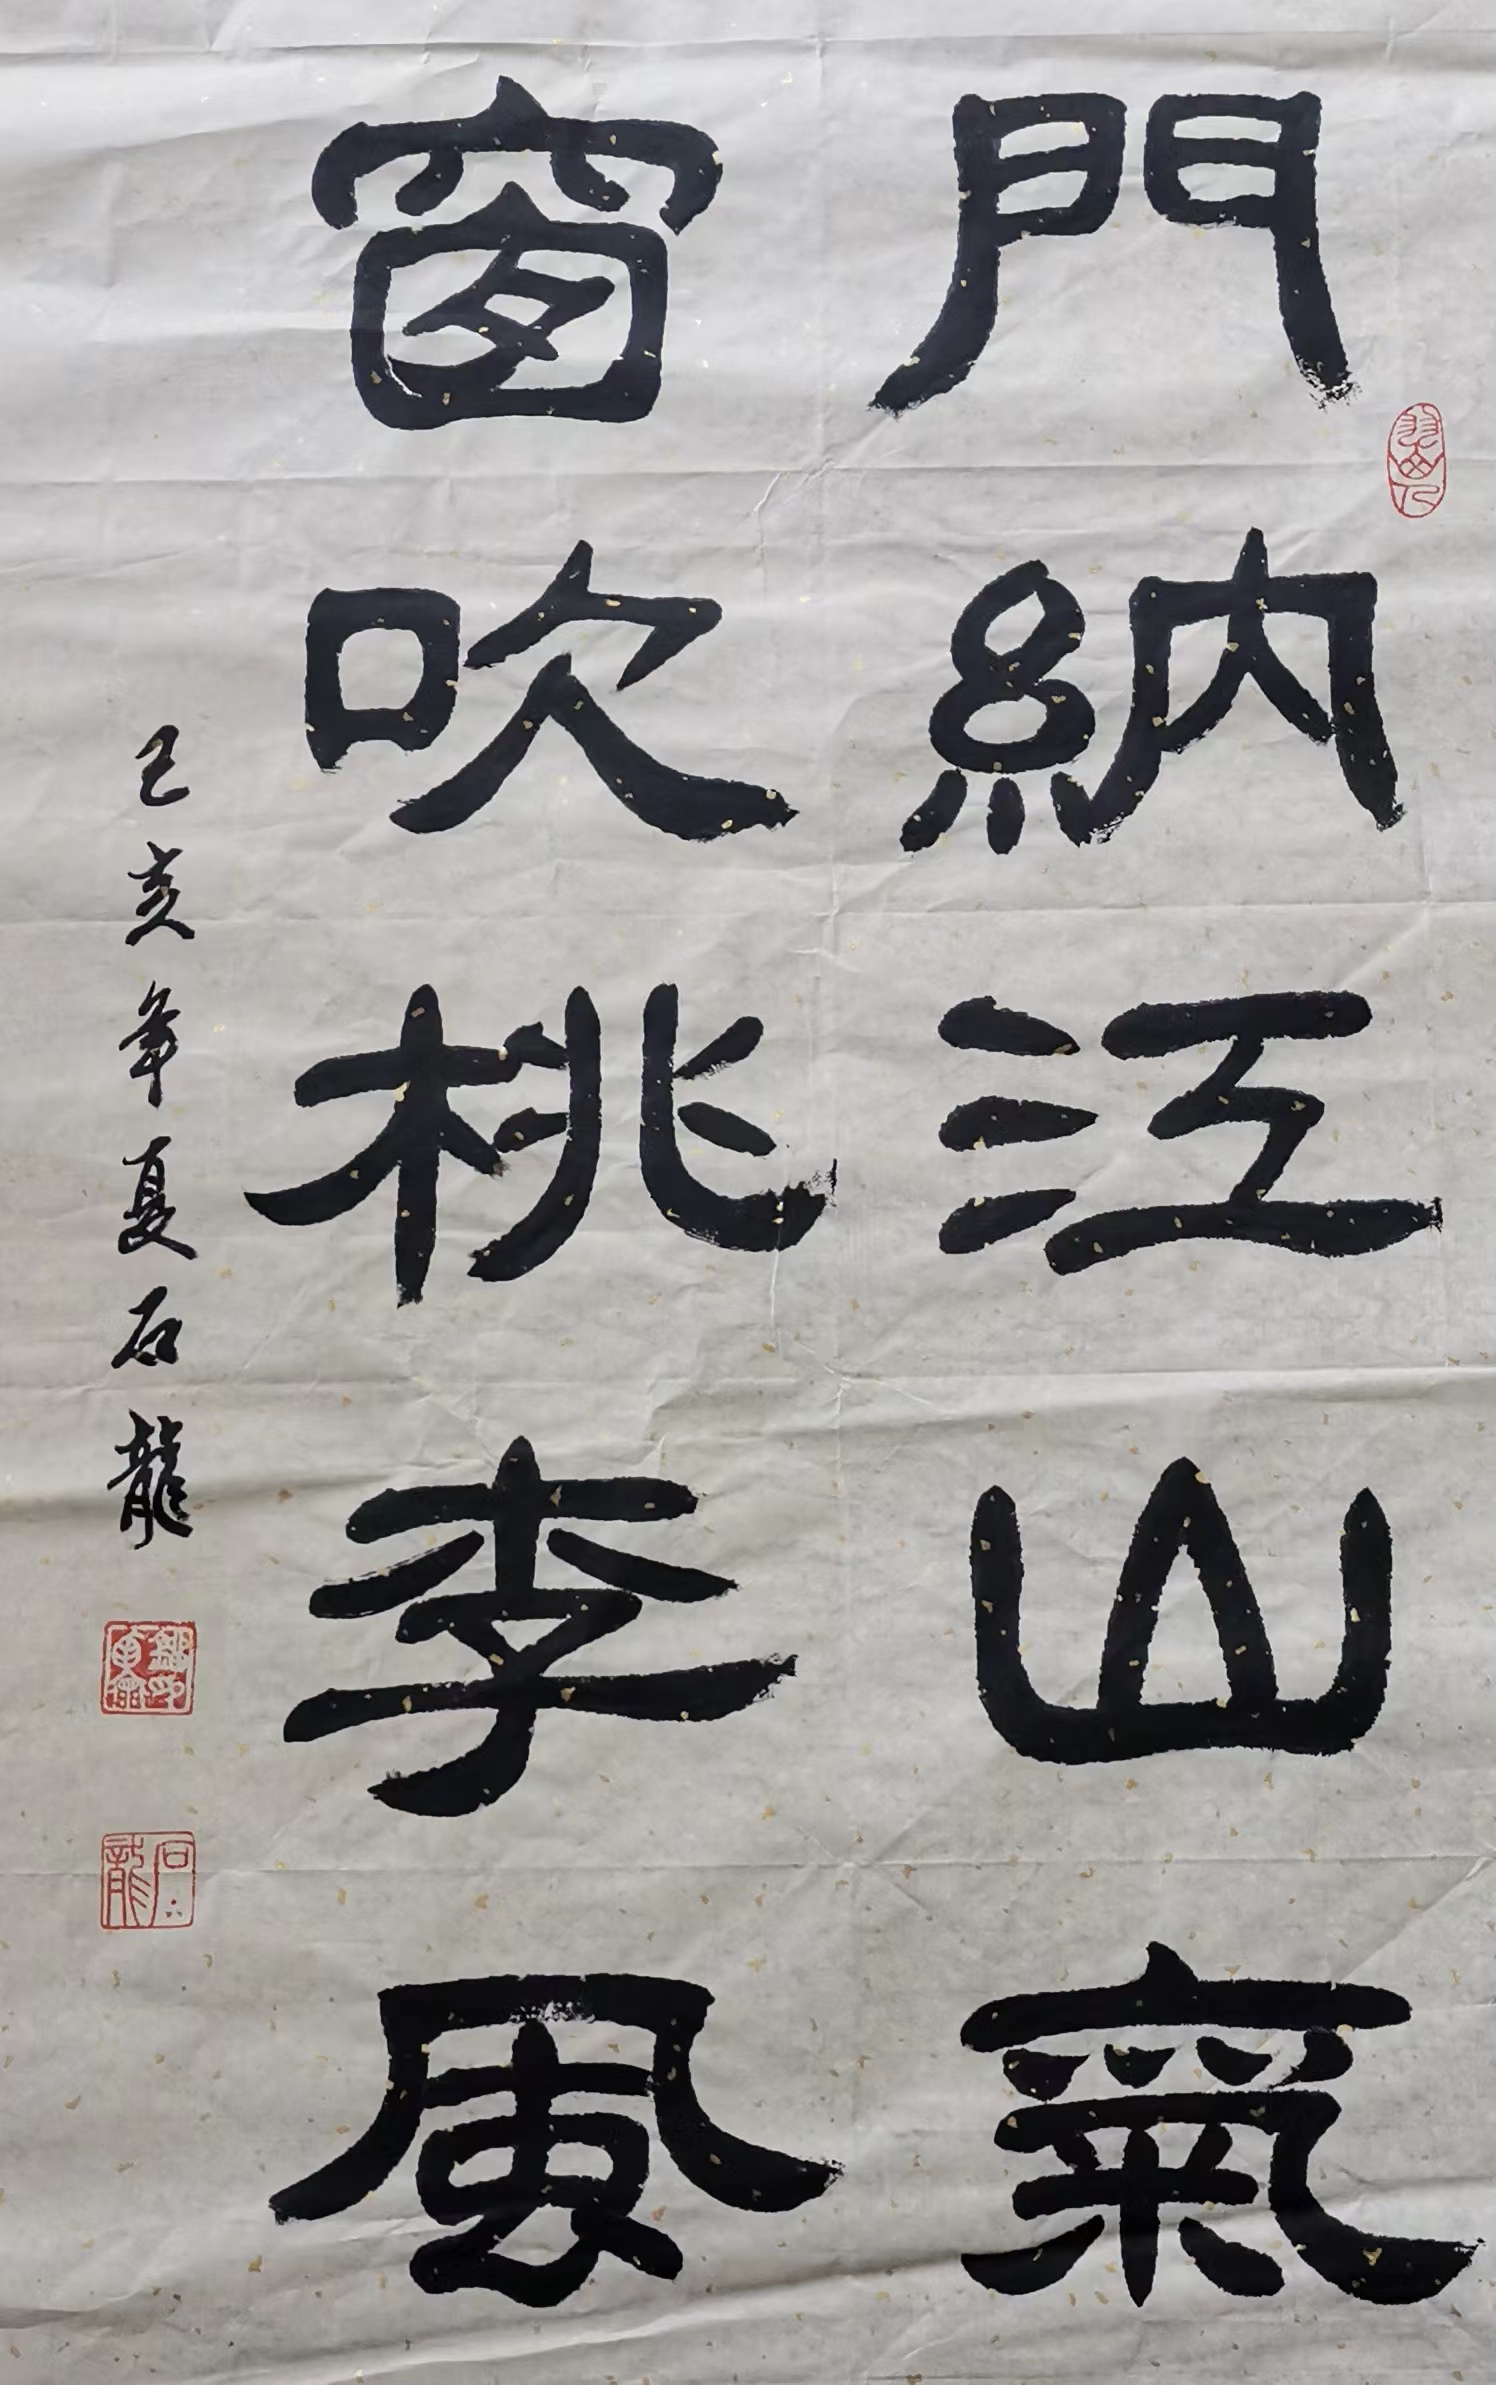 門納江山氣
窗吹桃李風
己亥年夏石龍
石龍